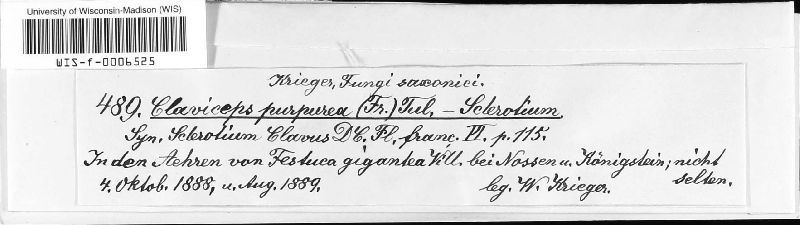 University of Wisconsin-Madison (WIS)
WIS-f-0006525
Krieger, Fungi saxonici.
489. Claviceps purpurea (Fr.) Tul. – Sclerotium
Syn. Sclerotium Clavus DC. Fl. franc. VI. p. 115.
In den Aehren von Festuca gigantea Vill. bei Nossen u. Königstein; nicht selten.
4. Oktob. 1888, u. Aug. 1889. leg. W. Krieger.